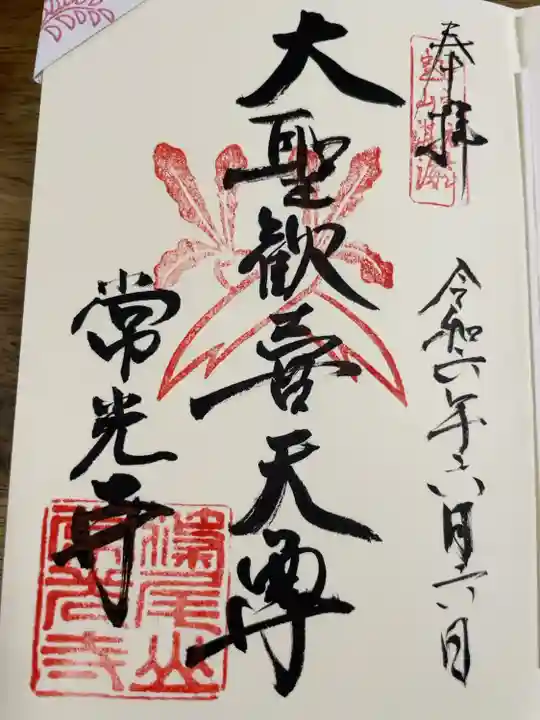 奉拝
令和六年六月六日
大聖歓喜天尊
常光寺
常光寺